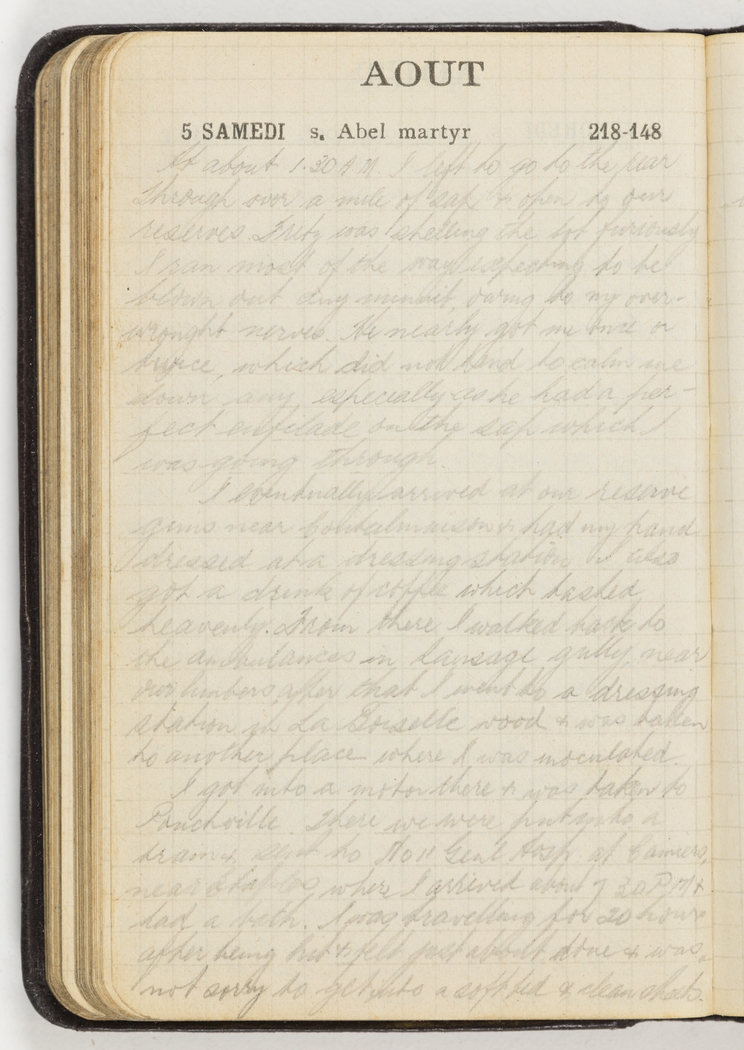 AOUT
5 SAMEDI s. Abel martyr 218-148
At about 1.30 A.M. I left to go to the rear
through over a mile of sap & open to our
reserves. Fritz was shelling the lot furiously
I ran most of the way expecting to be
blown out any minuit, owing to my over-
wrought nerves. He nearly got me once or
twice, which did not tend to calm me
down any, especially as he had a per-
fect enfilade on the sap which I
was going through.
I eventually arrived at our reserve
guns near Contalmaison & had my hand
dressed at a dressing station. I also
got a drink of coffee which tasted
heavenly. From there I walked back to
the ambulances in Sausage gully, near
our limbers, after that I went to a dressing
station in La Boiselle wood & was taken
to another place where I was inoculated.
I got into a motor there & was taken to
There we were put into a
train & sent to No 11 Gen'l Hosp. at Camiers,
near Etaples, where I arrived about 7 30 P.M &
had a bath. I was travelling for 20 hours
after being hit & felt just about done & was
not sorry to get into a soft bed & clean sheets.